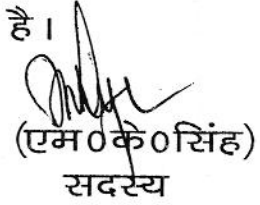 है।
(एम0के0सिंह)
सदस्य